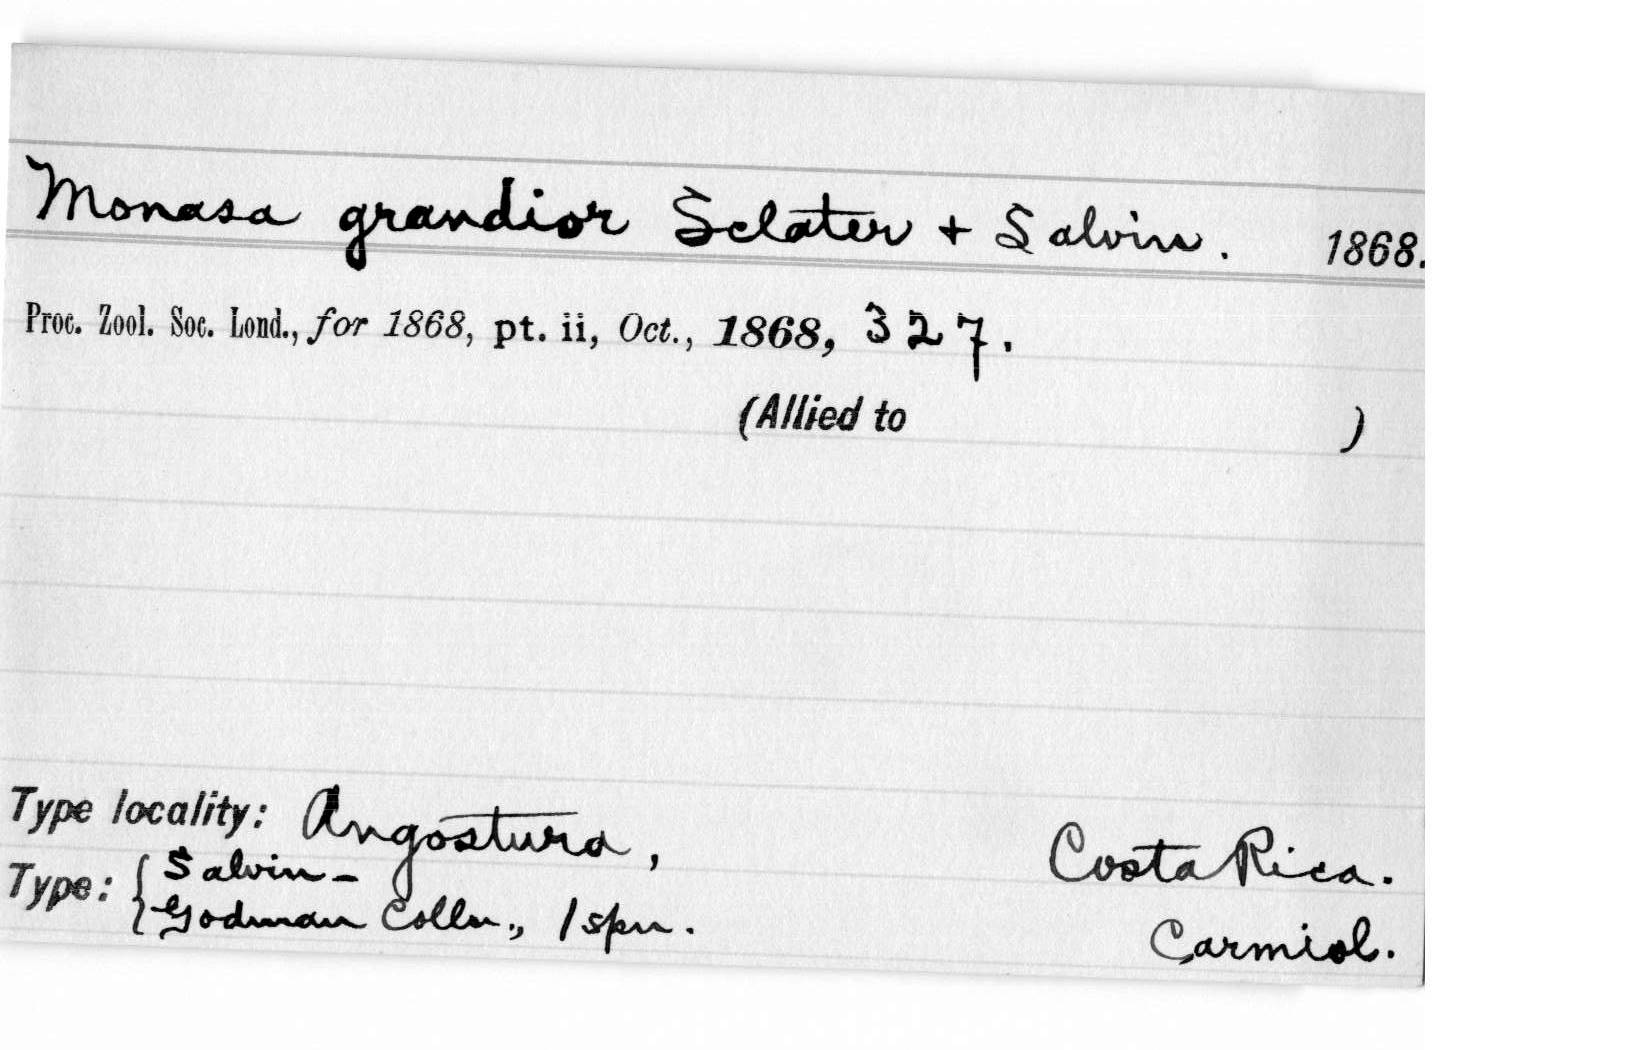 Monasa grandior Sclater + Salvin. 1868.
Proc. Zool. Soc. Lond., for 1868, pt. ii, Oct., 1868, 327.
(Allied to )
Type locality: Angostura, Costa Rica.
Type: { Salvin-
Godman Colln., 1 spn. Carmiol.